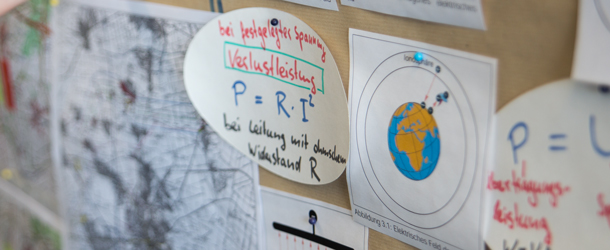 bei festgelegter Spannung
Verlustleistung
P = R · I²
bei Leitung mit ohmschem
Widerstand R
Abbildung 3.1: Elektrisches Feld
P = U
Übertragungs-
leistung